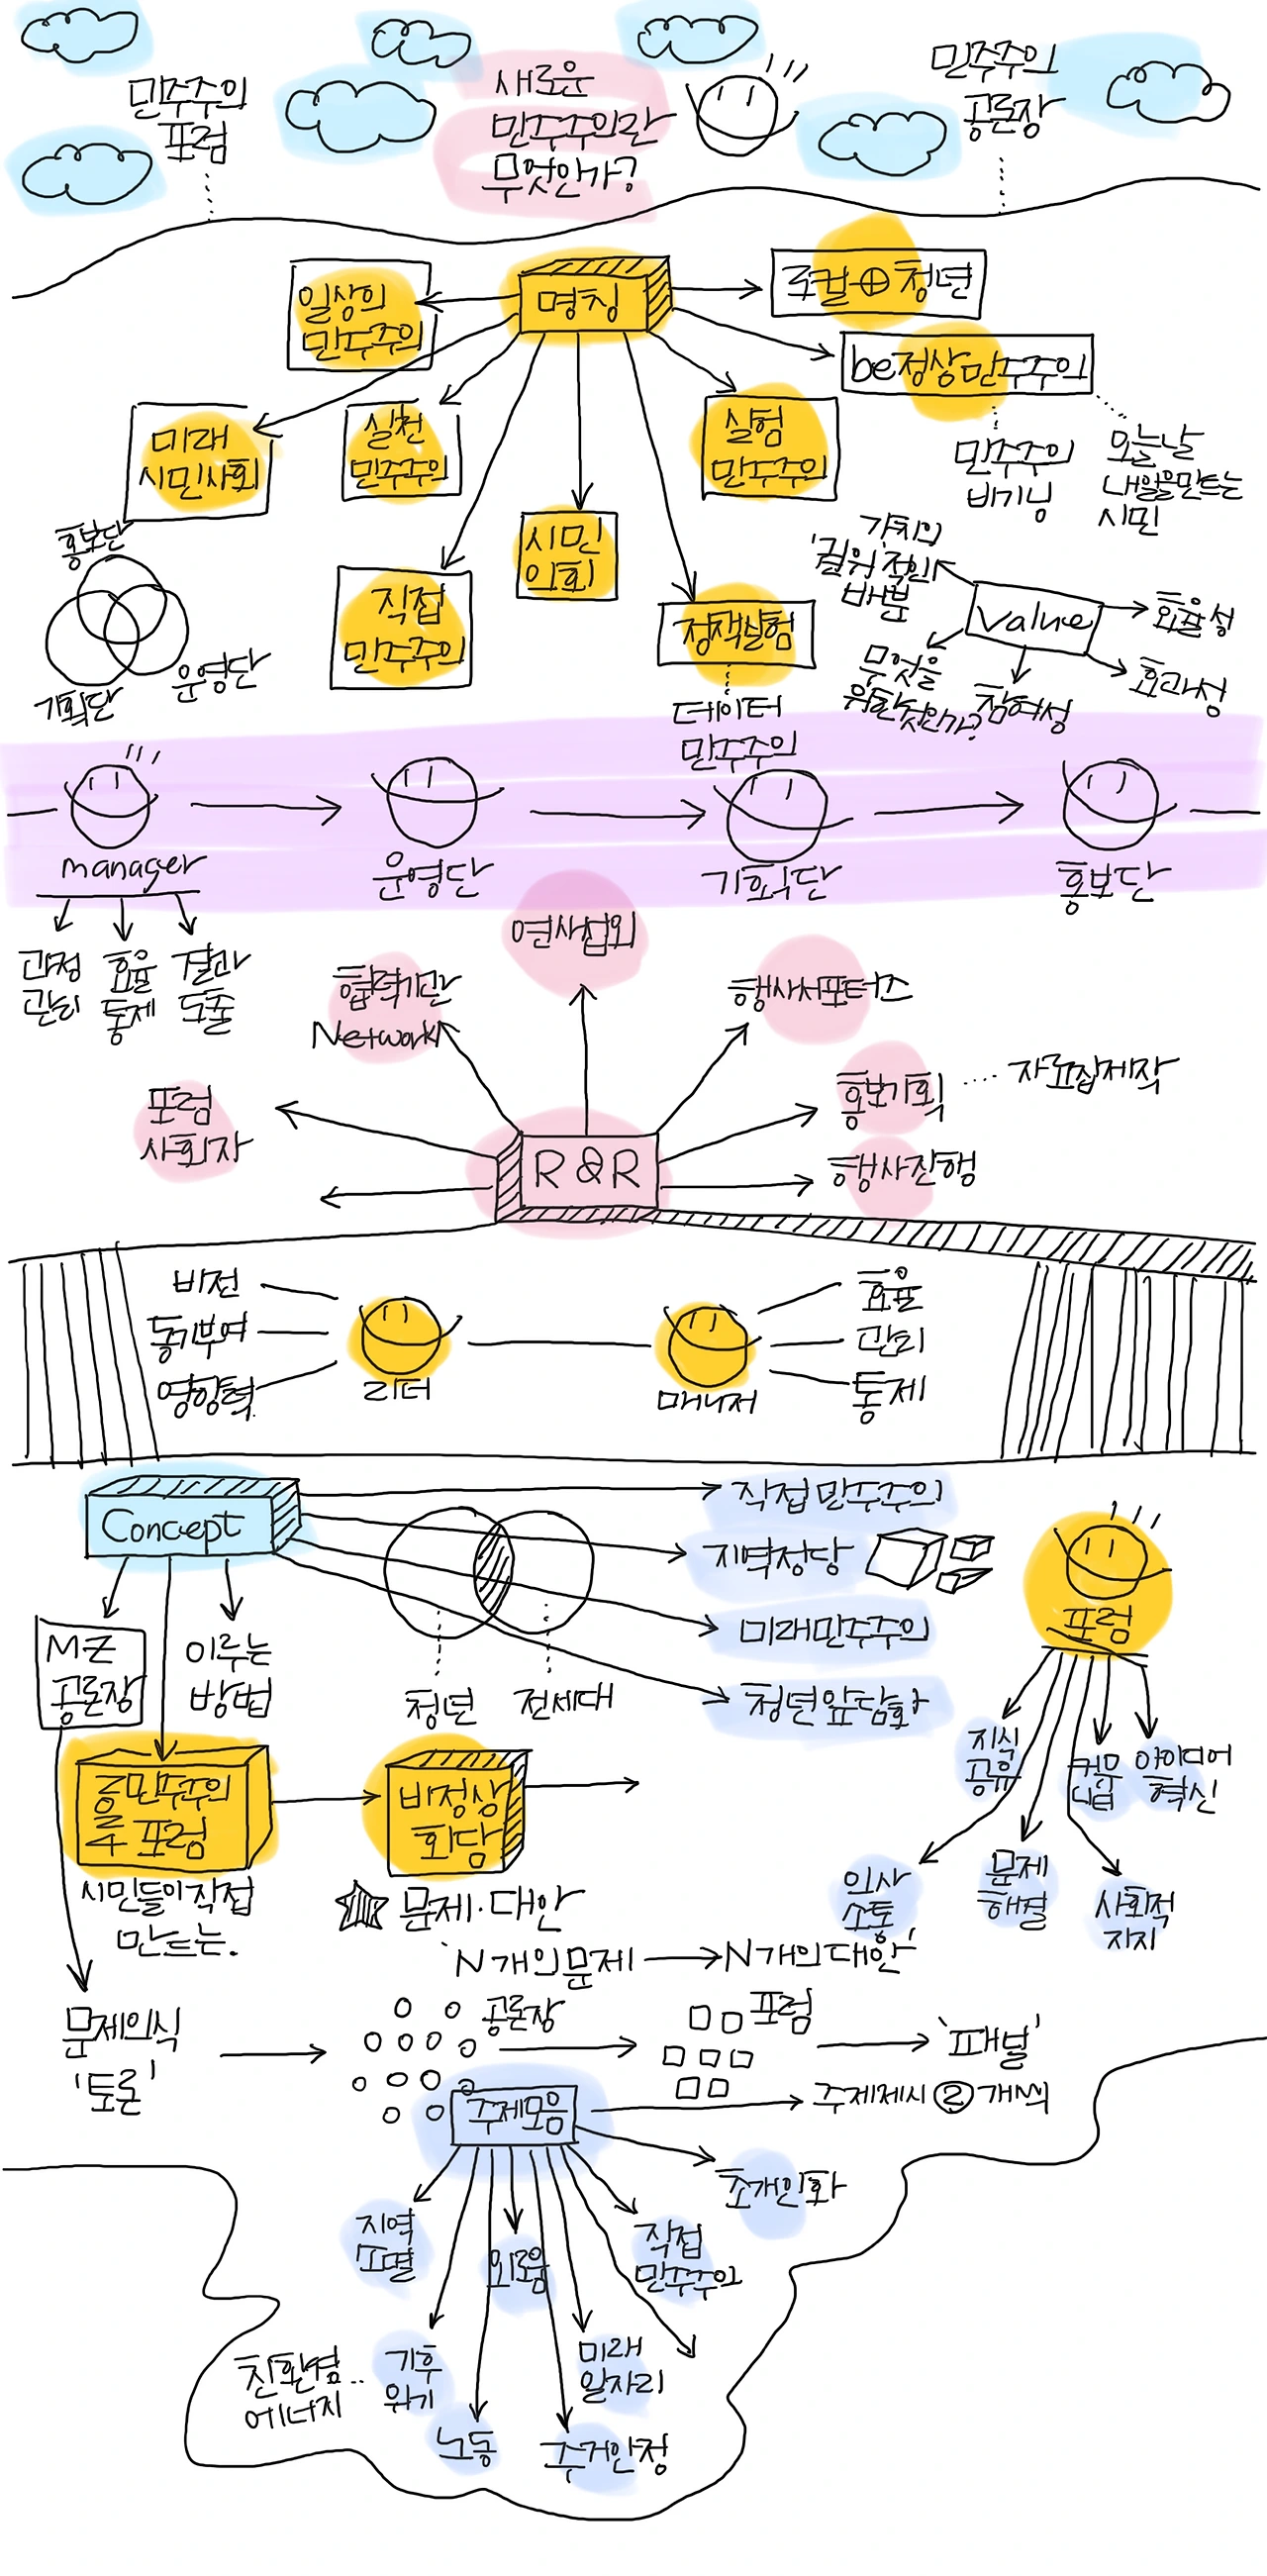 민주주의
포럼
새로운
민주주의란
무엇인가?
민주주의
공론장
명칭
일상의
민주주의
로컬⊕청년
be정상민주주의
민주주의
비기닝
오늘날
내일을만드는
시민
미래
시민사회
실천
민주주의
실험
민주주의
시민
의회
직접
민주주의
정책실험
데이터
민주주의
홍보단
기획단
운영단
가치의
'권위적인
배분
value
효율성
효과성
참여성
무엇을
위한것인가?
manager
운영단
기획단
홍보단
과정
관리
효율
통제
결과
도출
연사섭외
협력기관
Network
행사서포터즈
포럼
사회자
홍보기획
자료집제작
행사진행
R&R
비전
동기부여
영향력
리더
매니저
효율
관리
통제
Concept
직접민주주의
지역정당
미래민주주의
청년앞담화
MZ
공론장
이루는
방법
청년
전세대
포럼
지식
공유
커뮤
니티
아이디어
혁신
의사
소통
문제
해결
사회적
지지
민주주의
포럼
시민들이직접
만드는.
비정상
회담
문제·대안
'N개의문제
N개의대안'
문제의식
'토론'
공론장
포럼
'패널'
주제모음
주제제시②개씩
초개인화
지역
소멸
외로움
직접
민주주의
친환경
에너지
기후
위기
미래
일자리
노동
주거안정